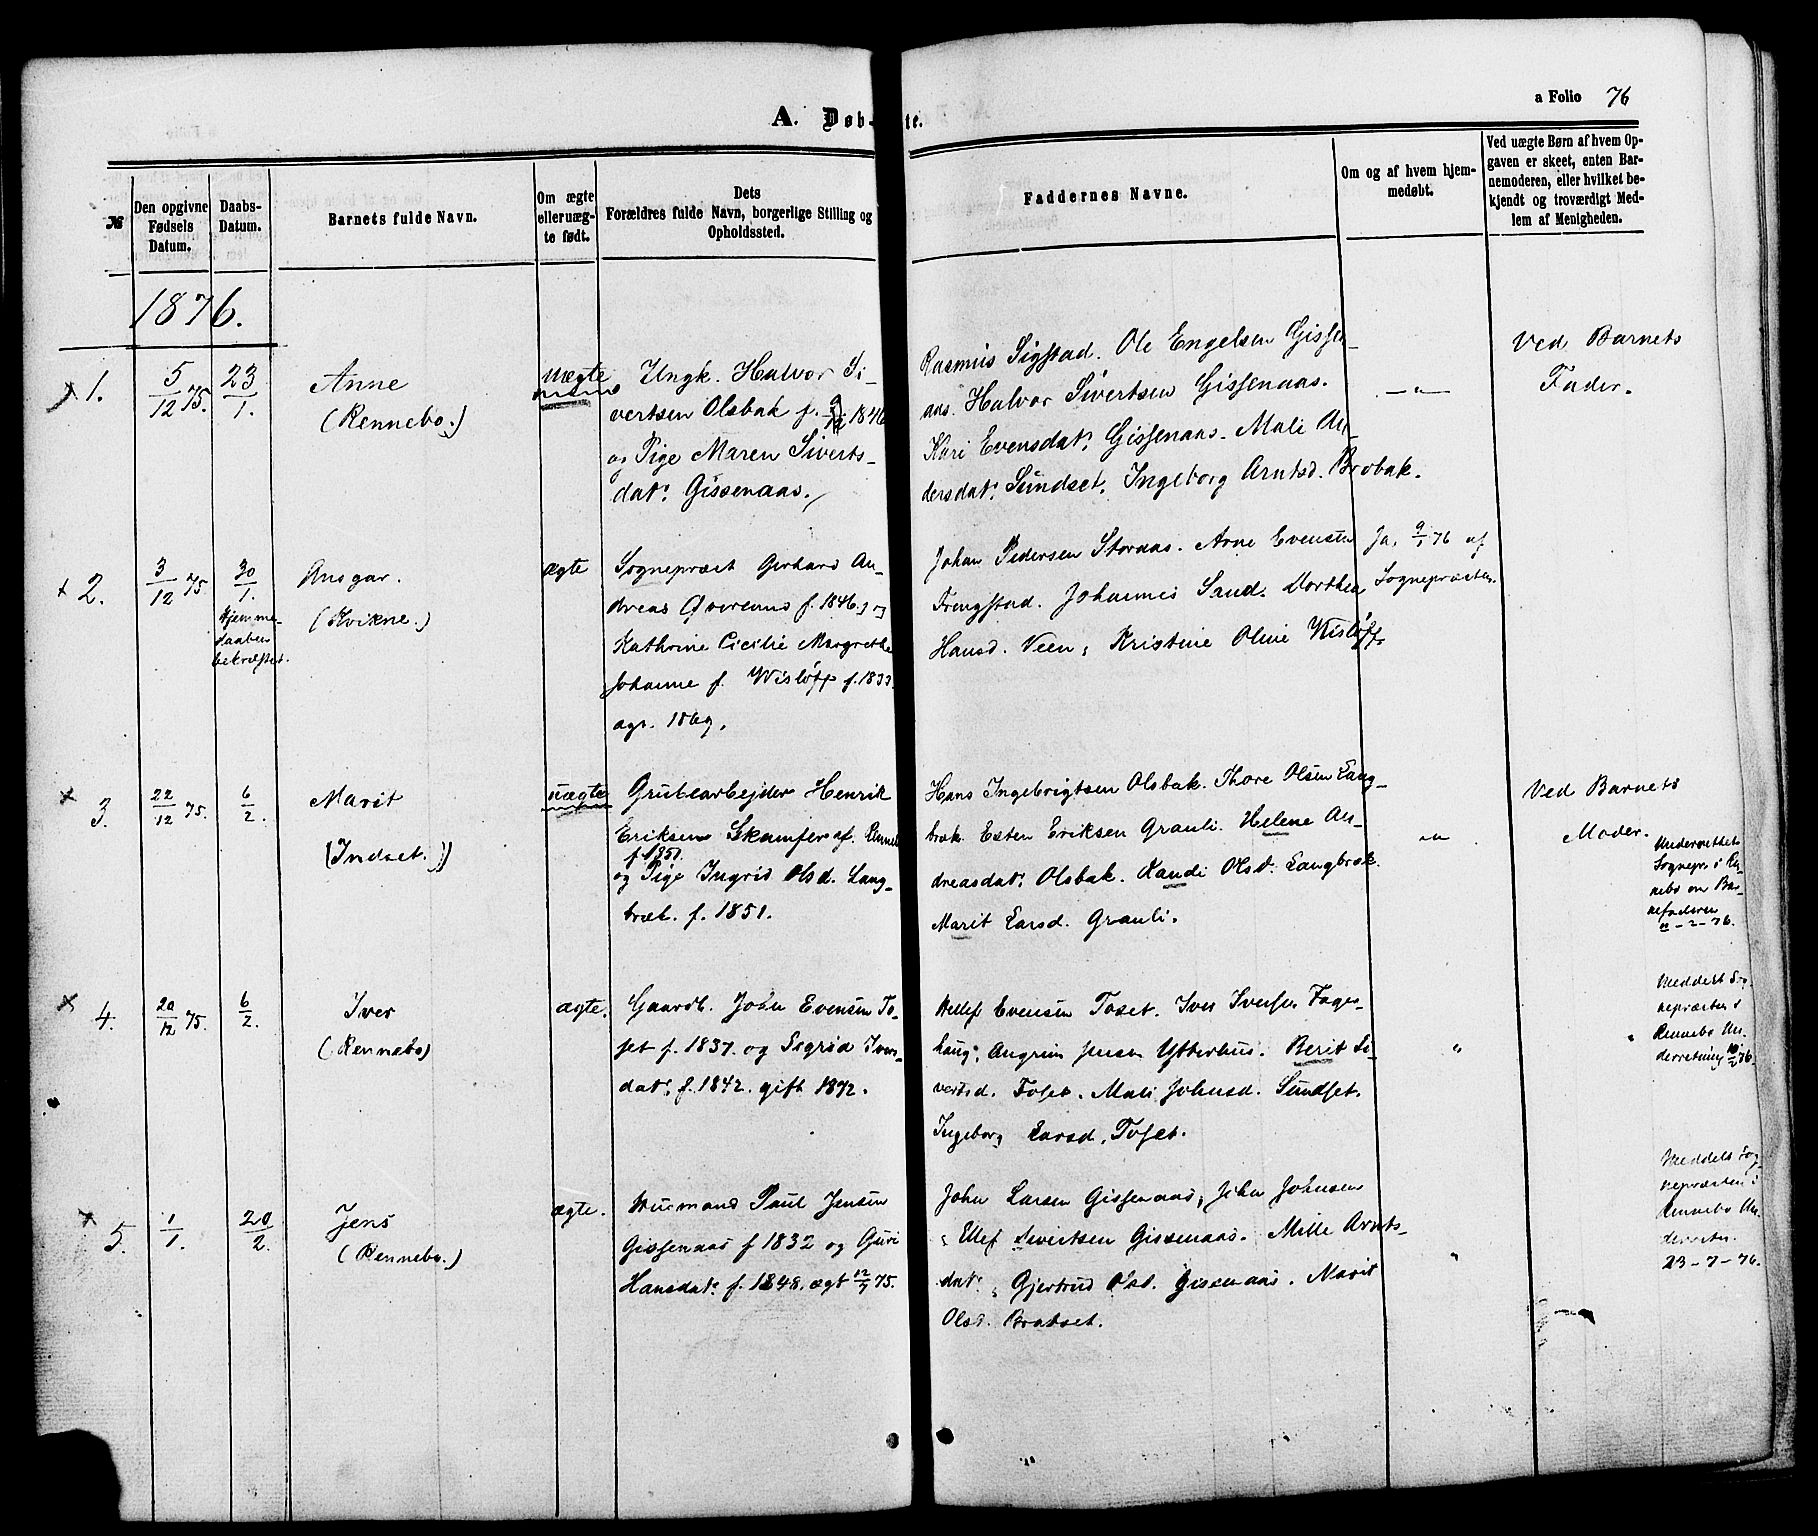 A. Døb-te.
a Folio 76
№
Den opgivne Fødsels Datum.
Daabs-Datum.
Barnets fulde Navn.
Om ægte eller uægte født.
Dets Forældres fulde Navn, borgerlige Stilling og Opholdssted.
Faddernes Navne.
Om og af hvem hjemmedøbt.
Ved uægte Børn af hvem Opgaven er skeet, enten Barnemoderen, eller hvilket bekjendt og troværdigt Medlem af Menigheden.
1876.
1.
5/12 75.
23/1.
Anne
(Rennebo.)
uægte
Ungk. Halvor Si-
vertsen Olsbak f. 1846
og Pige Maren Siverts-
dat. Gissenaas.
Rasmus Sigstad. Ole Engelsen Gissen-
aas. Halvor Sivertsen Gissenaas.
Kari Evensdat. Gissenaas. Mali An-
dersdat. Sundset. Ingeborg Arntsd. Brobak.
—"—
Ved Barnets
Fader.
x 2.
3/12 75
30/1.
Hjemme-
daaben
bekræftet.
Ansgar.
(Kvikne.)
ægte
Sognepræst Gerhard An-
dreas f. 1846 og
Kathrine Cicilie Margrethe
Johanne f. Wisløff f. 1833
agt. 1869.
Johan Pedersen Storaas. Arne Evensen
Frengstad. Johannes Sand. Dorthea
Hansd. Veen, Kristine Oline Wisløff.
Ja, 9/1 76 af
Sognepræsten.
x
3.
22/12 75.
6/2.
Marit
(Indset.)
uægte
Grubearbejder Henrik
Eriksen Skamfer af
f. 1851.
og Pige Ingrid Olsd. Lang-
bræk. f. 1851.
Hans Ingebrigtsen Olsbak. Thore Olsen Lang-
bræk. Esten Eriksen Grauli. Helene An-
dreasdat. Olsbak. Randi Olsd. Langbræk.
Marit Larsd. Grauli.
"
Ved Barnets
Moder.
Underrettet
Sognepr. i Re-
nebo om Bar-
nefaderen
11-2-76.
x
4.
20/12 75.
6/2.
Iver
(Rennebo)
ægte.
Gaardb. John Evensen To-
set f. 1837. og Sigrid Ivers-
dat. f. 1842. gift 1872.
Evensen Toset. Iver Iversen Fages-
haug, Angrim Jensen Ytterhus. Berit Si-
vertsd. Toset. Mali Johnsd. Sundset.
Ingeborg Larsd. Toset.
"
"
Meddelt Sog-
nepræsten i
Rennebo Un-
derretning 10/2 76.
x
5.
1/1
20/2.
Jens
(Rennebo.)
ægte.
Husmand Paul Jensen
Gissenaas f 1832 og Guri
Hansdat. f. 1848. ægt 75.
John Larsen Gissenaas, John Johnsen
" Ellef Sivertsen Gissenaas. Mille Arnts-
dat. " Gjertrud Olsd. Gissenaas. Marit
Olsd. Bratset.
"
Meddelt Sog-
nepræsten i
Rennebo Un-
derretn.
23-7-76.